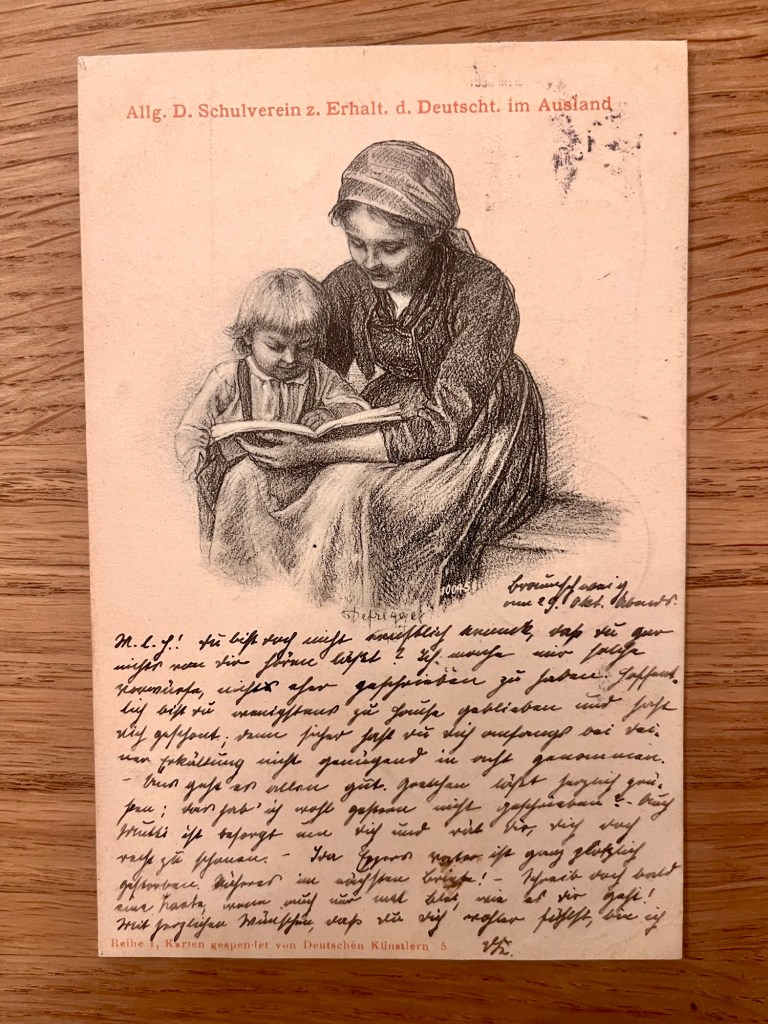 Allg. D. Schulverein z. Erhalt. d. Deutscht. im Ausland
10045
Defregger
Braunschweig
am 29. Okt. Abends.
M. l. H.! Du bist doch nicht ernstlich krank, daß du gar
nichts von dir hören läßt? Ich mache mir solche
Vorwürfe, nichts eher geschrieben zu haben. Hoffent-
lich bist du wenigstens zu Hause geblieben und hast
dich geschont; denn sicher hast du dich anfangs bei dei-
ner Erkältung nicht genügend in acht genommen.
- Uns geht es allen gut. Gretchen läßt herzlich grü-
ßen; das hab' ich wohl gestern nicht geschrieben? - Auch
Mutti ist besorgt um dich und rät dir, dich doch
recht zu schonen. - Ida Vater ist ganz plötzlich
gestorben. Näheres im nächsten Briefe! - Schreib doch bald
eine Karte, wenn auch nur mit Blei, wie es dir geht!
Mit herzlichen Wünschen, daß du dich wohler fühlst, bin ich
Reihe 1, Karten gespendet von Deutschen Künstlern 5